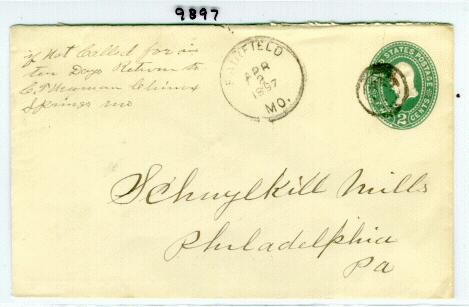 9897
if Not Called for in
ten Days Return to
C. P. Newman Climax
Springs Mo
FIELD
APR
2
1897
MO.
STATES POSTAGE
2
CENTS
Schuylkill Mills
Philadelphia
Pa